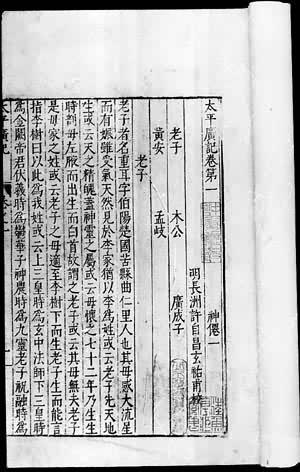 太平廣記卷第一 神僊一
明長洲許自昌玄祐甫校
老子 木公 廣成子
黃安 孟岐
老子
老子者名重耳字伯陽楚國苦縣曲仁里人也其母感大流星
而有娠雖受氣天然見於李家猶以李為姓或云老子先天地
生或云天之精魄蓋神靈之屬或云母懷之七十二年乃生生
時剖母左腋而出生而白首故謂之老子或云其母無夫老子
是母家之姓或云老子之母適至李樹下而生老子生而能言
指李樹曰以此為我姓或云上三皇時為玄中法師下三皇時
為金闕帝君伏羲時為鬱華子神農時為九靈老子祝融時為
太平廣記